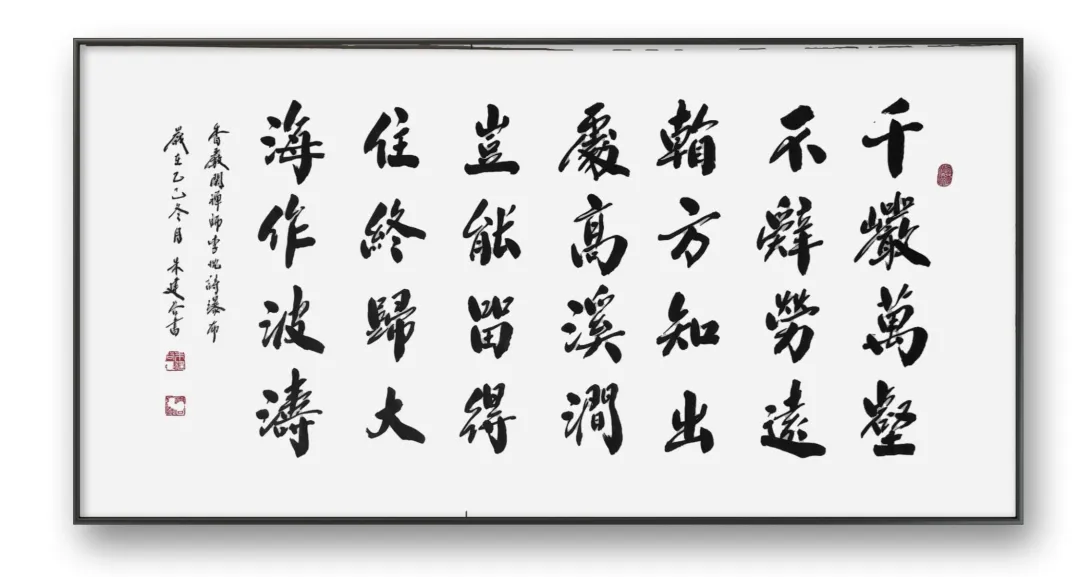 千巖萬壑
不辭勞遠
看方知出
處高溪澗
豈能留得
住終歸大
海作波濤
香嚴閑禪師李忱詩瀑布
歲在乙巳冬月 朱建合書